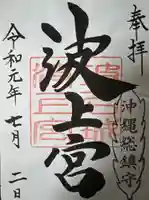 奉拝
沖縄総鎮守
波上宮
令和元年七月二日